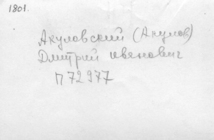 1801.
Акуловский (Акулов)
Дмитрий Иванович
П 72977